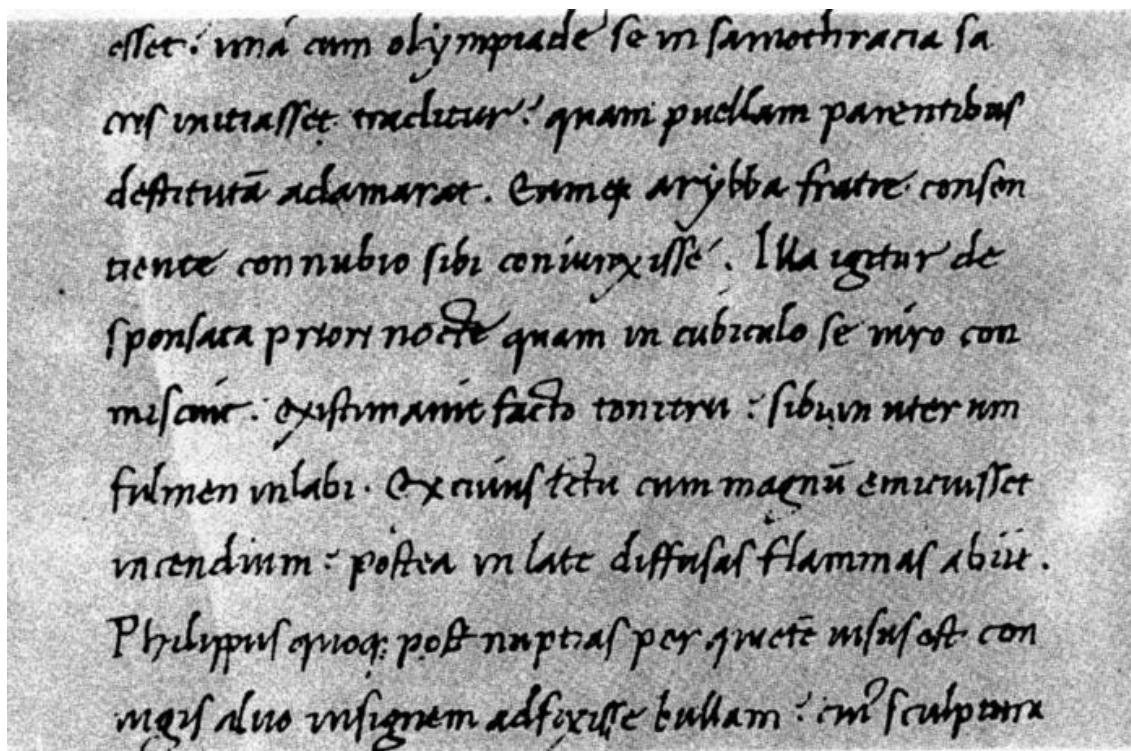 esset: unà cum olympiade se in samothracia sa
cris initiasset traditur: quam puellam parentibus
destitutā adamarat. Eamq; arybba fratre consen
tiente connubio sibi coniunxisse. Illa igitur de
sponsata priori nocte quam in cubiculo se uiro con
miscuit. existimauit facto tonitru: sibi in uterum
fulmen inlabi. Ex cuius ictu cum magnū emicuisset
incendium: postea in late diffusas flammas abiit.
Philippus quoq; post nuptias per quietē uisus est con
iugis aluo insignem adfixisse bullam: cui' sculptura